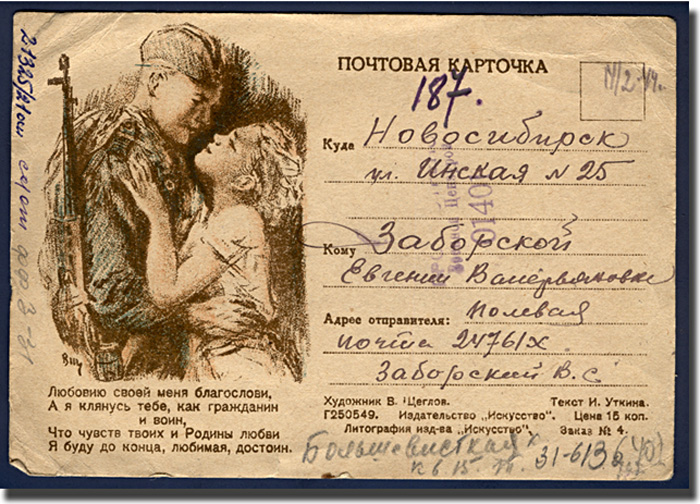 ПОЧТОВАЯ КАРТОЧКА
187.
Куда Новосибирск
ул. Инская N 25
Кому Заборской
Евгении Валерьяновне
Адрес отправителя: Полевая
почта 24761X.
Заборский В. С
Художник В. Щеглов. Текст И. Уткина.
Г250549. Издательство „Искусство“. Цена 15 коп.
Литография изд-ва „Искусство“. Заказ № 4.
Любовию своей меня благослови,
А я клянусь тебе, как гражданин
и воин,
Что чувств твоих и Родины любви
Я буду до конца, любимая, достоин.
Большевистская
31-613